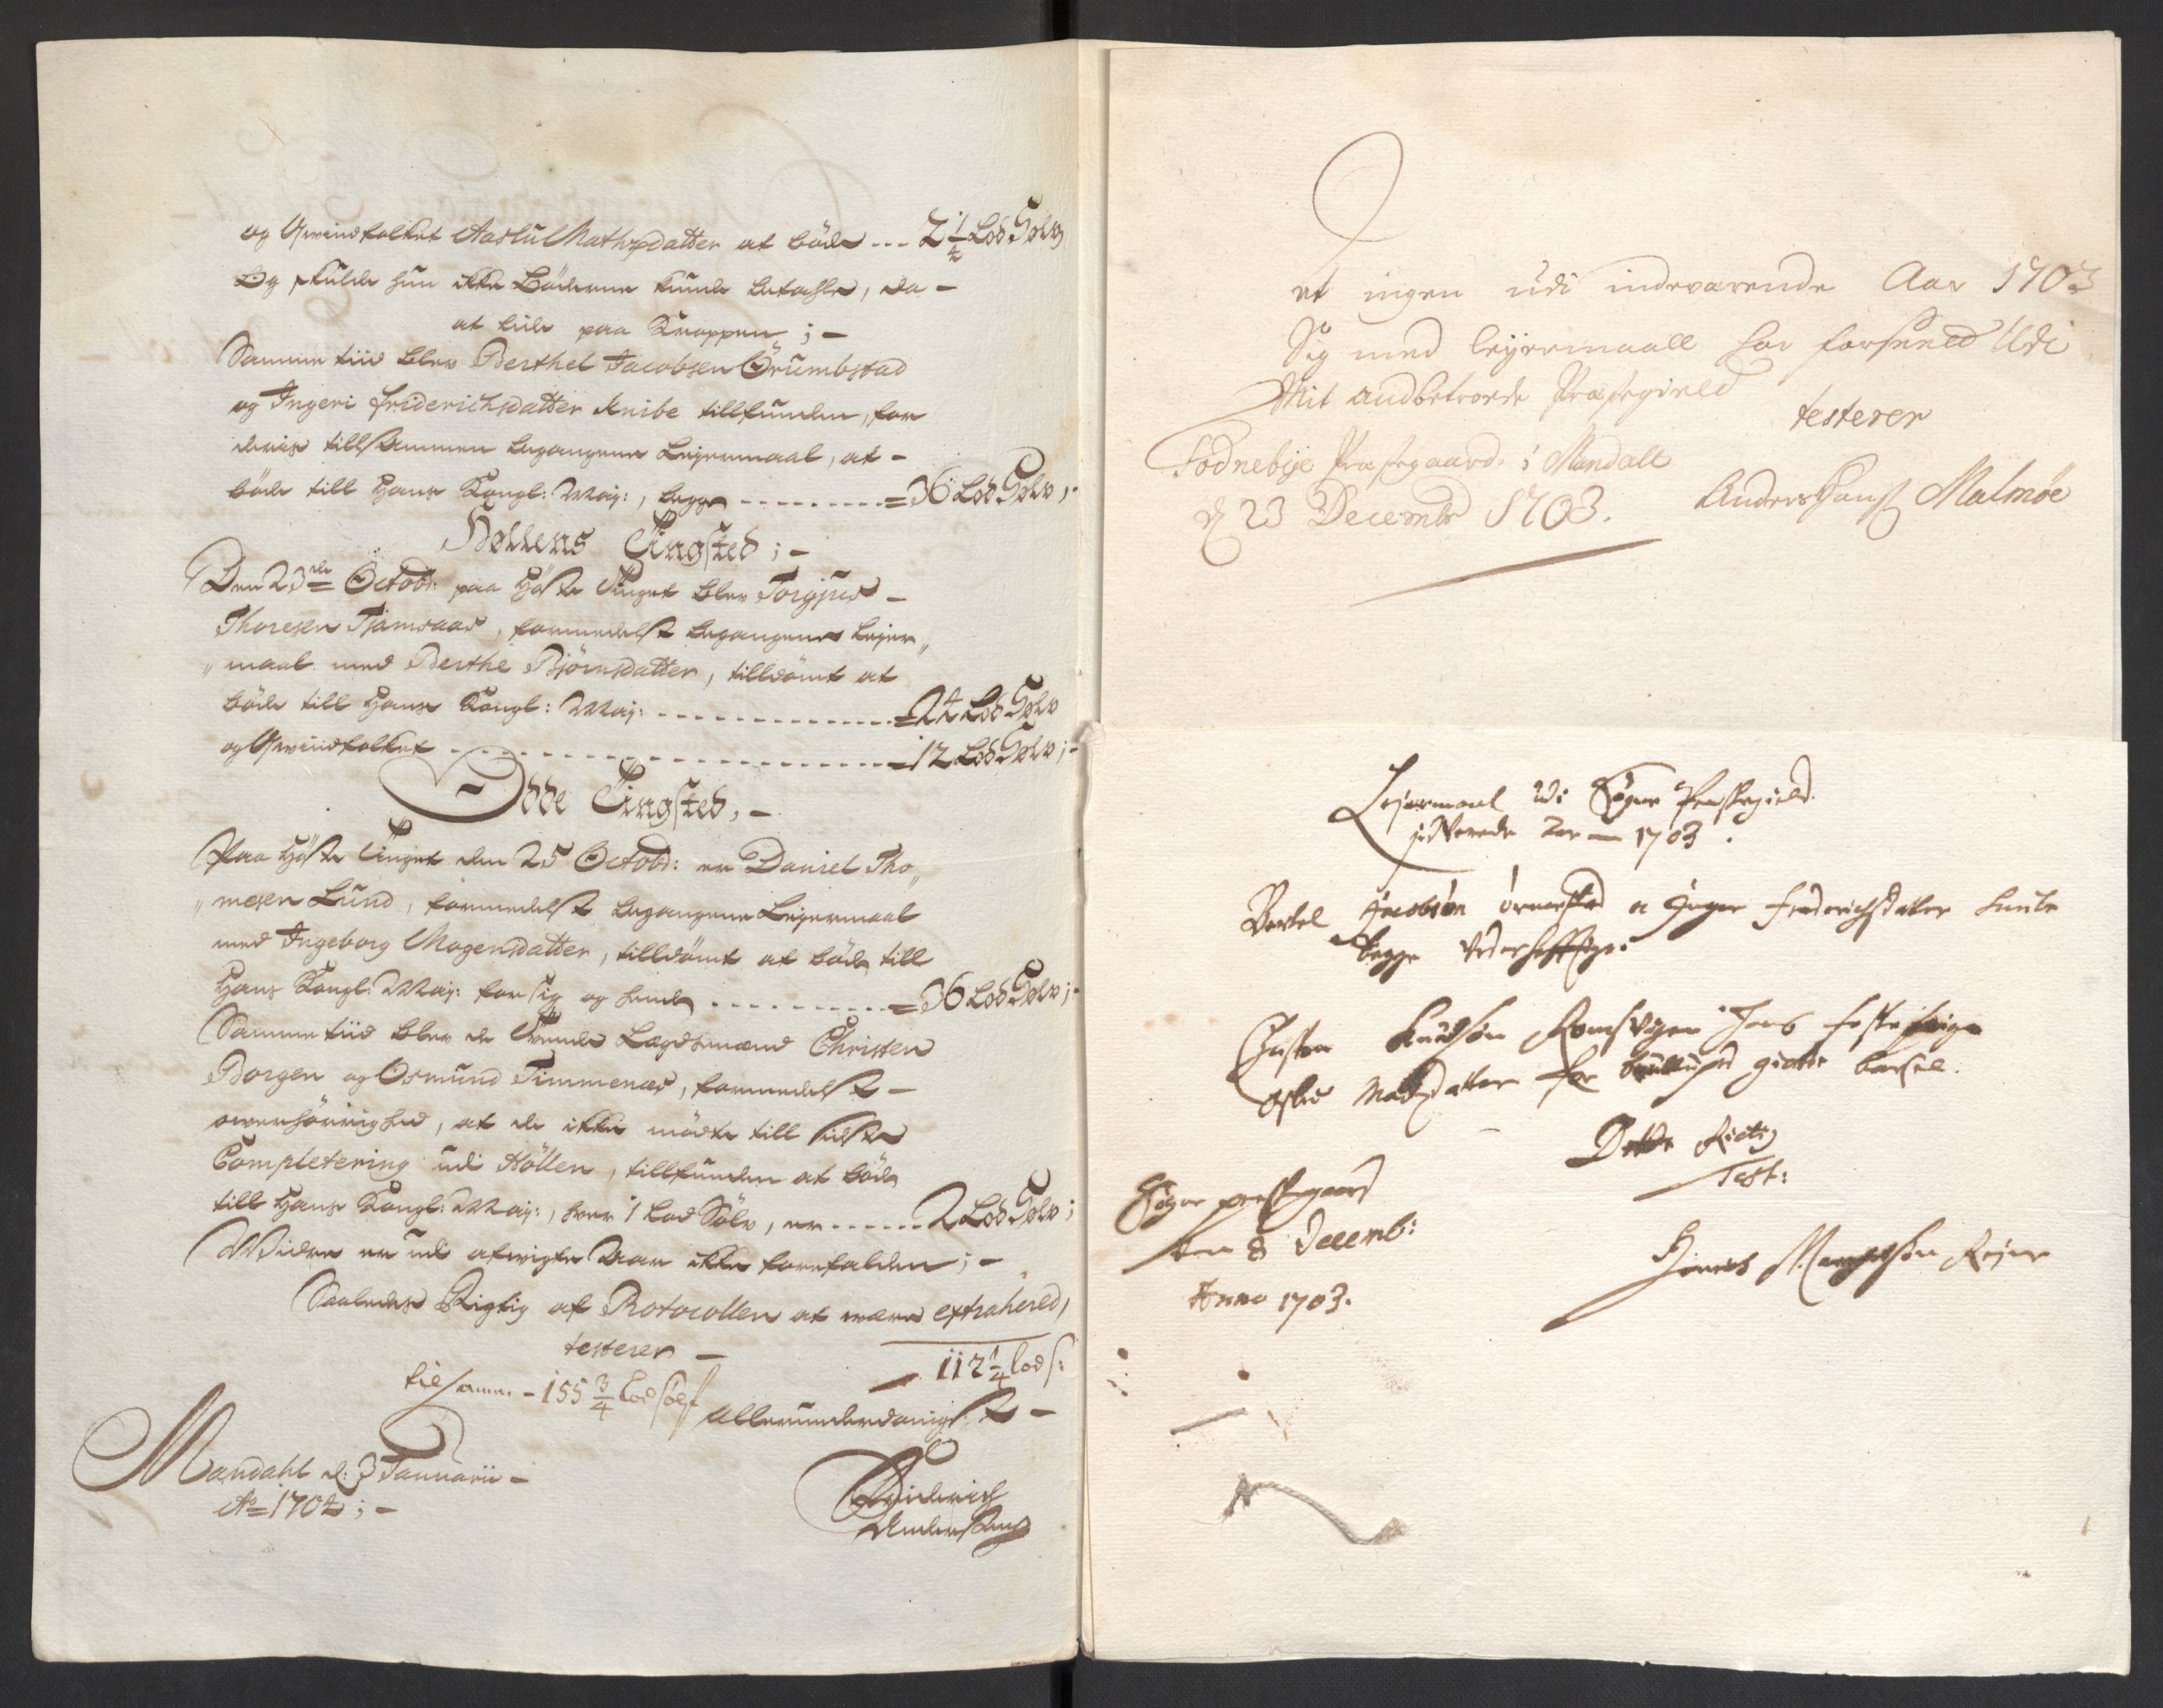 og Qvindfolket Aaslu Mathisdatter at böde --- 2 1/4 Lod Sölv
Og skulde hun icke Böderne kunde betahle, da -
at lide paa Kroppen ; -
Samme tiid blev Berthel Jacobsen Örumbstad
og Ingeri Friderichsdatter Knibe tillfunden, for
deris tillsammen begangene Leyermaal, at -
böde till Hans Kongl: May:, begge --------- = 36 Lod Sölv ; -
Höllens Tingsted ; -
Den 23de Octobr: paa Höste Tinget blev Torgjus -
Thoresen Tjamsaas, formedelst begangene Leyer„
„maal med Berthe Björnsdatter, tilldömt at
böde till Hans Kongl: May: ------------- = 24 Lod Sölv
og Qvindfolket ------------------------- = 12 Lod Sölv ; -
Odde Tingsted, -
Paa Höste Tinget den 25 Octobr: er Daniel Tho„
„mesen Lund, formedelst begangene Leyermaal
med Ingeborg Mogensdatter, tilldömt at böde till
Hans Kongl: May: for sig og hende --------- = 36 Lod Sölv ; -
Samme tiid blev de Tvende Lægdsmænd Christen
Borgen og Osmund Timmenes, formedelst -
overhörrighed, at de icke mödte till sidste
Completering udi Höllen, tillfunden at böde
till Hans Kongl: May:, hver 1 Lod Sölv, er ------ 2 Lod Sölv ;
Widere er udi afvigte Aar icke forefalden ; -
Saaledes Rigtig af Protocollen at være extrahered,
testerer -
112 1/4 Lod s:
tilsamm: - 155 3/4 Lod sölf
allerunderdanigst -
Mandahl d: 3 Januarii -
Ao 1704 ; -
Friderich
Andersen
at ingen udi indeværende Aar 1703
Sig med leyermaall har forseeed Udi
Mit andbetroede Præstegield
testerer
Södnebye Præstegaard i Mandall
d 23 Decembr 1703.
Anders Hanss Malmöe
Leyermaal udi Sögne Præstegield
indVerende Aar - 1703.
Bertel Jacobsön örnestad oc Inger Friderichsdatter Knibe
begge Vederhefftige
Christen Knudsön Romsvigen hans feste
Oslow Madsdatter for brÿllup giorde barsel.
Dette Rictig
Test:
Sögne præstegaard
den 8 Decemb:
Anno 1703.